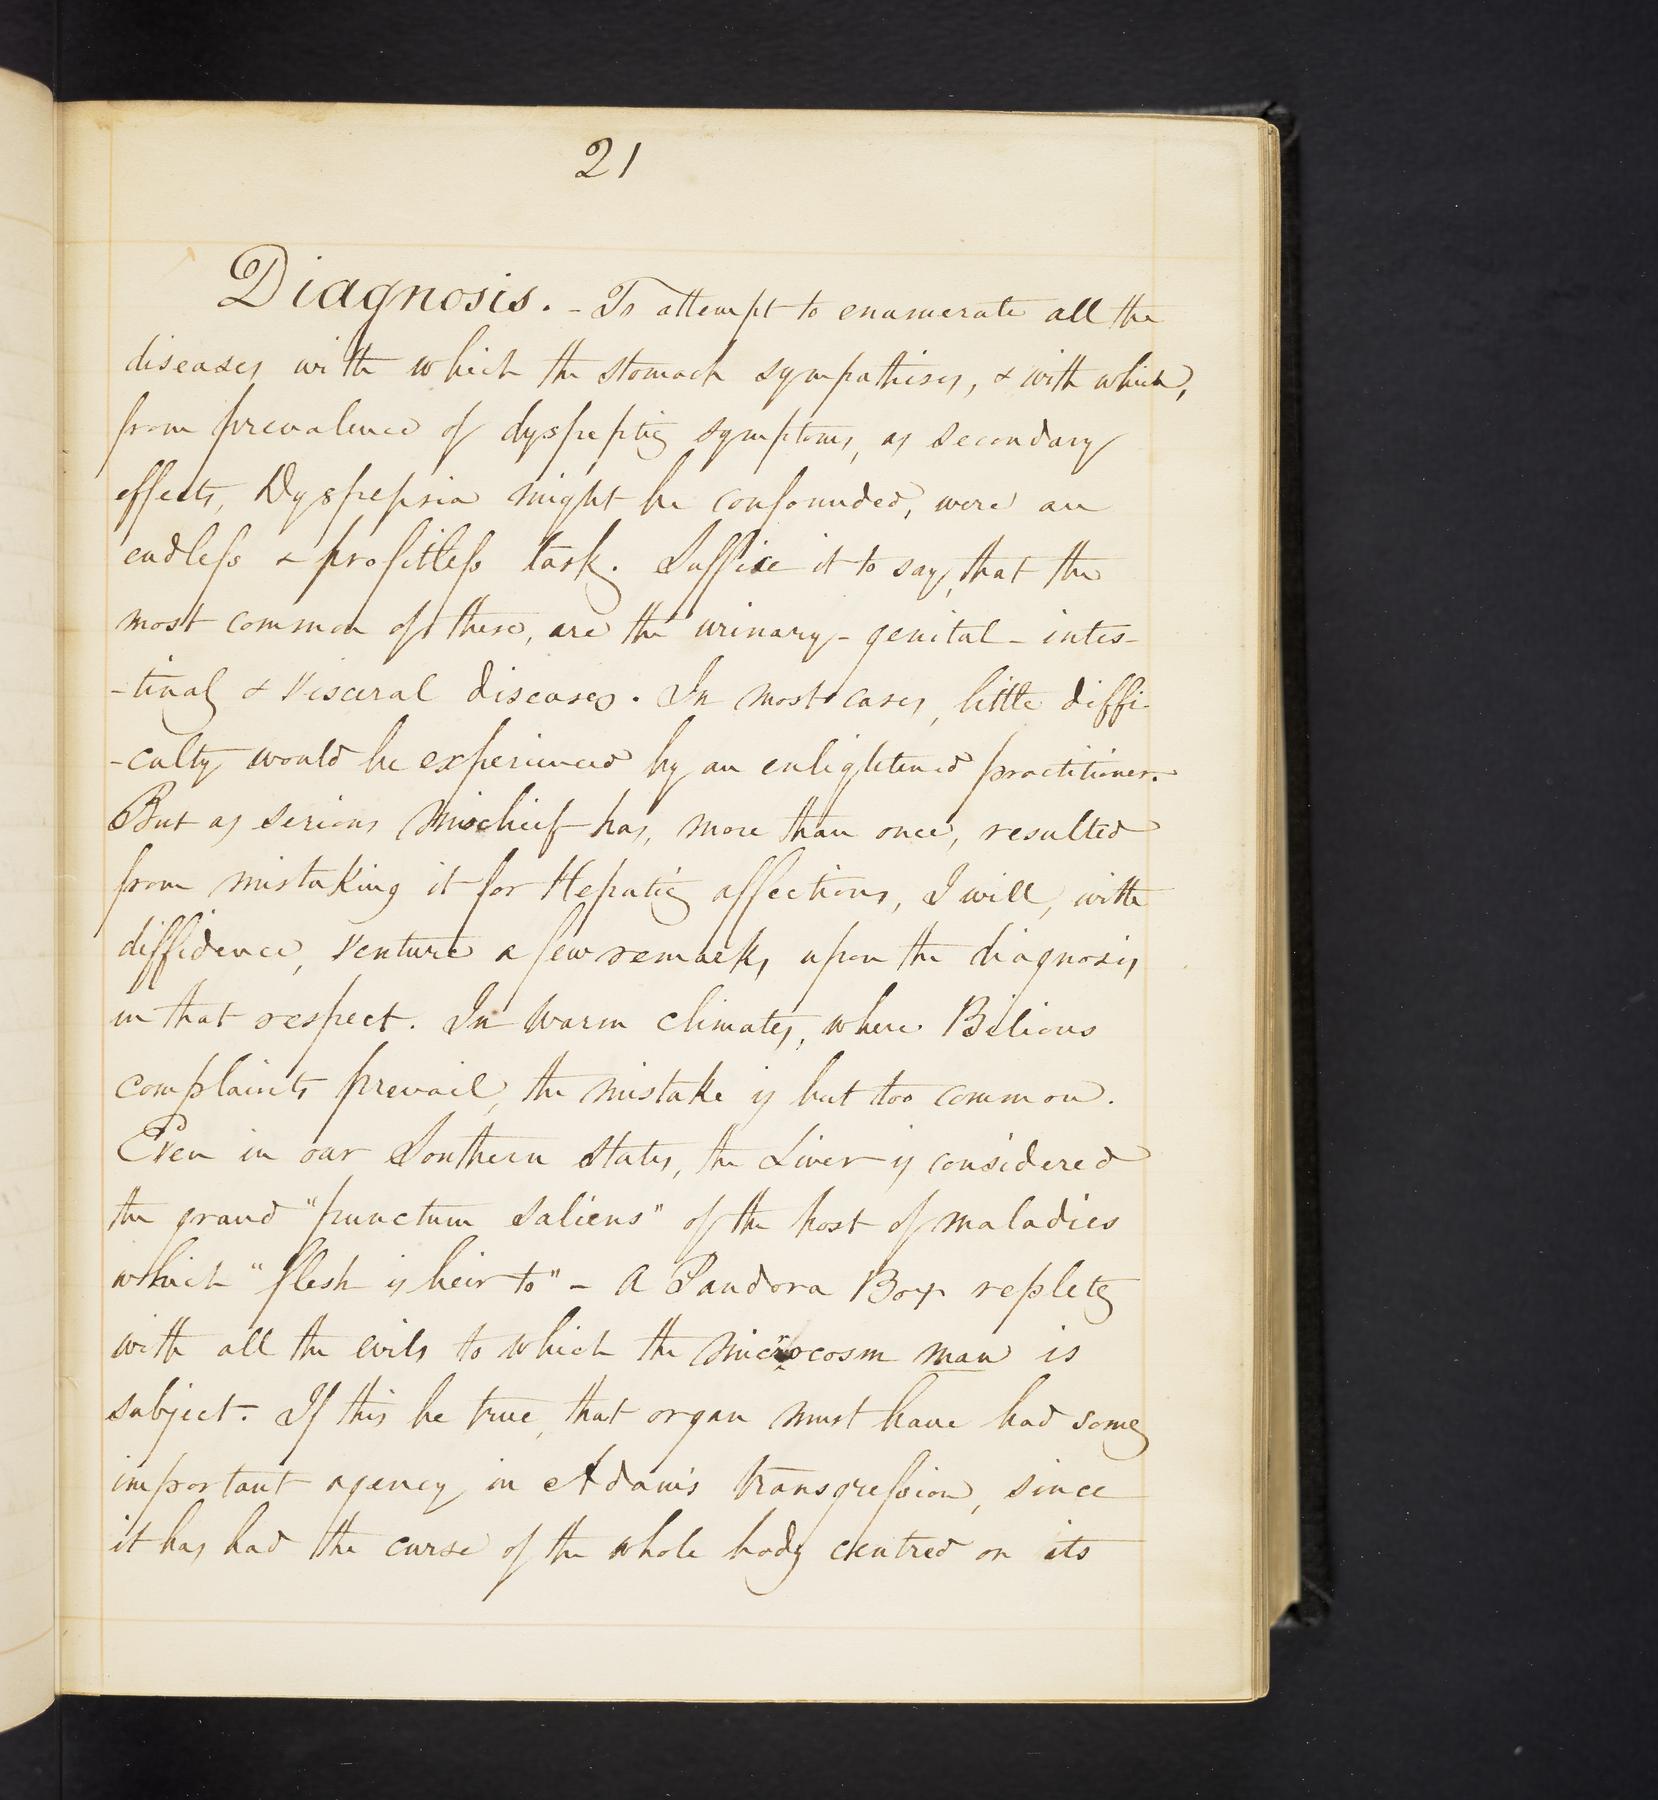 21
Diagnosis. - To attempt to enumerate all the
diseases with which the stomach sympathises, & with which,
from prevalence of dyspeptic symptoms, as secondary
effects, Dyspepsia might be confounded, were an
endless & profitless task. Suffice it to say, that the
most common of these, are the urinary - genital - intes-
-tinal & Visceral diseases. In most cases, little diffi-
-culty would be experienced by an enlightened practitioner.
But as serious mischief has, more than once, resulted
from mistaking it for Hepatic affections, I will, with
diffidence, venture a few remarks upon the diagnosis
in that respect. In warm climates, where Bilious
complaints prevail, the mistake is but too common.
Even in our Southern States, the Liver is considered
the grand "punctum saliens" of the host of maladies
which "flesh is heir to" - A Pandora Box replete
with all the evils to which the microcosm man is
subject. If this be true, that organ must have had some
important agency in Adam's transgression, since
it has had the curse of the whole body centred on its